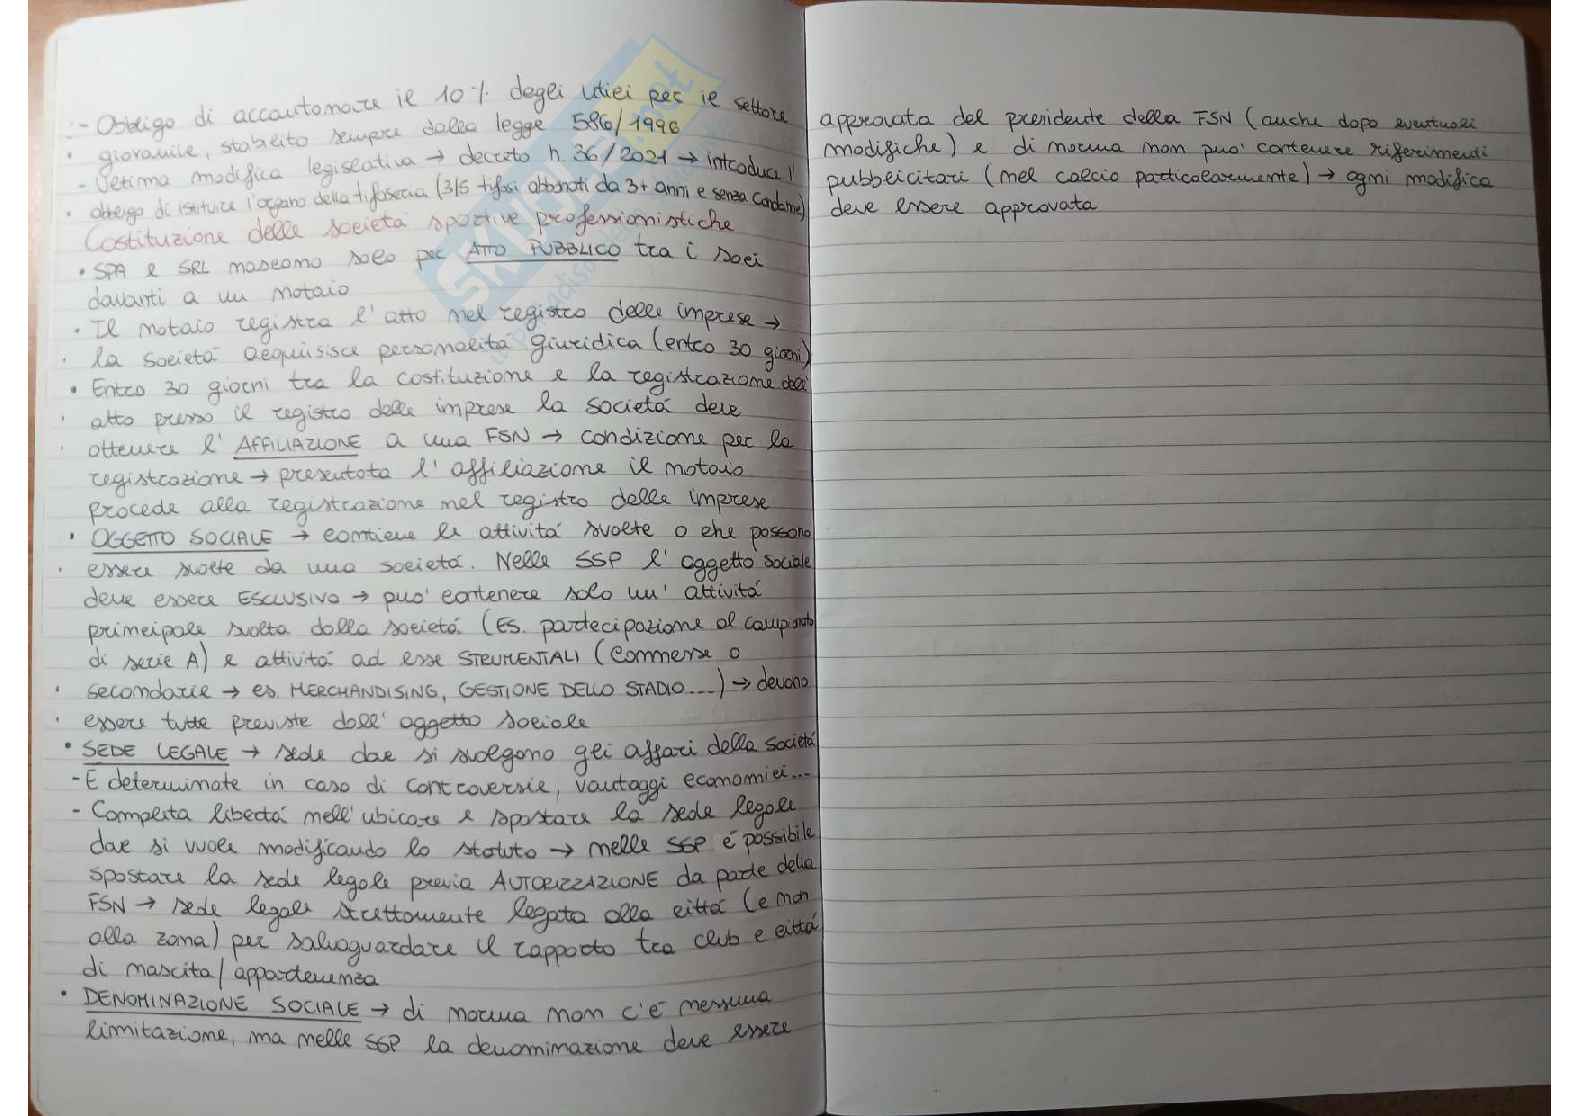 - Obbligo di accantonare il 10% degli utili per il settore
giovanile, stabilito sempre dalla legge 586/1996
- Ultima modifica legislativa → decreto n. 36/2021 → introduce l'
obbligo di istituire l'organo della tifoseria (3/5 tifosi abbonati da 3+ anni e senza condanne)
Costituzione delle società sportive professionistiche
• SPA e SRL nascono solo per ATTO PUBBLICO tra i soci
davanti a un notaio
• Il notaio registra l'atto nel registro delle imprese →
la società acquisisce personalità giuridica (entro 30 giorni)
• Entro 30 giorni tra la costituzione e la registrazione dell'
atto presso il registro delle imprese la società deve
ottenere l'AFFILIAZIONE a una FSN → condizione per la
registrazione → presentata l'affiliazione il notaio
procede alla registrazione nel registro delle imprese
• OGGETTO SOCIALE → contiene le attività svolte o che possono
essere svolte da una società. Nelle SSP l'oggetto sociale
deve essere ESCLUSIVO → può contenere solo un'attività
principale svolta dalla società (ES. partecipazione al campionato
di serie A) e attività ad esse STRUMENTALI (connesse o
secondarie → es. MERCHANDISING, GESTIONE DELLO STADIO....) → devono
essere tutte previste dall'oggetto sociale
• SEDE LEGALE → sede dove si svolgono gli affari della società
- È determinate in caso di controversie, vantaggi economici...
- Completa libertà nell'ubicare e spostare la sede legale
dove si vuole modificando lo statuto → nelle SSP è possibile
spostare la sede legale previa AUTORIZZAZIONE da parte della
FSN → sede legale strettamente legata alla città (e non
alla zona) per salvaguardare il rapporto tra club e città
di nascita/appartenenza
• DENOMINAZIONE SOCIALE → di norma non c'è nessuna
limitazione, ma nelle SSP la denominazione deve essere
approvata del presidente della FSN (anche dopo eventuali
modifiche) e di norma non può contenere riferimenti
pubblicitari (nel calcio particolarmente) → ogni modifica
deve essere approvata